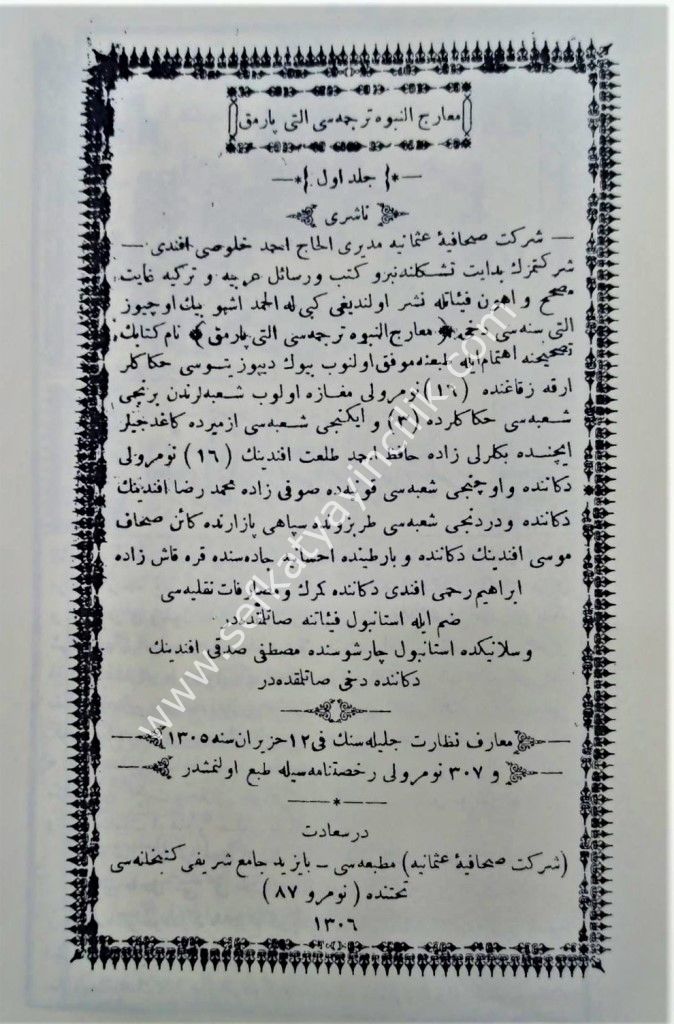 معارج النبوه ترجمه‌سی التی پارمق
جلد اول
ناشری
شرکت صحافیهٔ عثمانیه مدیری الحاج احمد خلوصی افندی
شرکتمزك بدایت تشکلندنبرو کتب و رسائل عربیه و ترکیه غایت
مصحح و اهون فیئاتله نشر اولندیغی کبی له الحمد اشبو بیك اوچیوز
التی سنه‌سی ﴿ معارج النبوه ترجمه‌سی التی پارمق ﴾ نام کتابك
تصحیحنه اهتمام ایله طبعنه موفق اولنوب بیوك دیپوزیتوسی حکاکلر
ارقه زقاغنده (١٦) نومرولی مغازه اولوب شعبه‌لرندن برنجی
شعبه‌سی حکاکلرده (٣) و ایکنجی شعبه‌سی ازمیرده کاغدجیلر
ایچنده بکلرلی زاده حافظ احمد طلعت افندینك (١٦) نومرولی
دکاننده و اوچنجی شعبه‌سی قونیه‌ده صوفی زاده محمد رضا افندینك
دکاننده و دردنجی شعبه‌سی طربزونده سپاهی پازارنده کائن صحاف
موسی افندینك دکاننده و بارطینده احسانیه جاده‌سنده قره قاش زاده
ابراهیم رحمی افندی دکاننده کمرك و مصارفات نقلیه‌سی
ضم ایله استانبول فیئاتنه صاتلقده‌در
و سلانیکده استانبول چارشوسنده مصطفی صدقی افندینك
دکاننده دخی صاتلقده‌در
معارف نظارت جلیله‌سنك فی ١٢ حزیران سنه ١٣٠٥
و ٣٠٧ نومرولی رخصتنامه‌سیله طبع اولنمشدر
درسعادت
(شرکت صحافیهٔ عثمانیه) مطبعه‌سی – بایزید جامع شریفی کتبخانه‌سی
تحتنده (نومرو ٨٧)
١٣٠٦
www.sefkatyayincilik.com